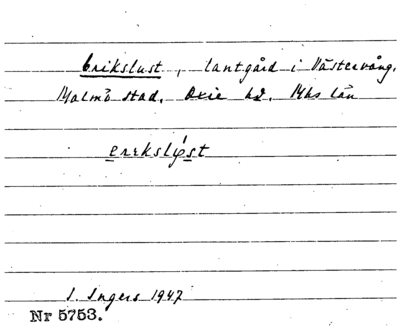 Erikslust, lantgård i Västervång,
Malmö stad. Oxie hd. Mhs län
erikslø̍st
I. Ingers 1947
Nr 5753.